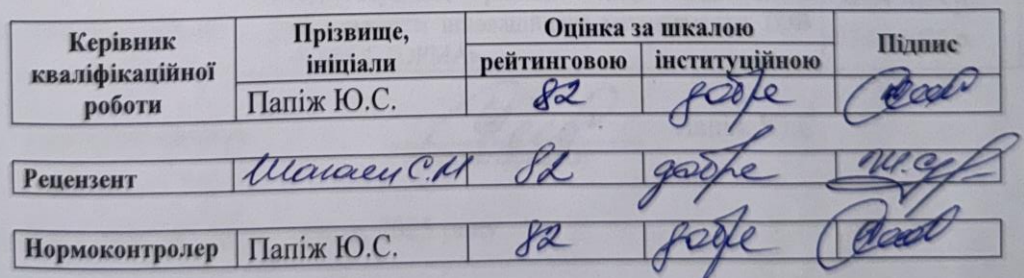 Керівник кваліфікаційної роботи Прізвище, ініціали Оцінка за шкалою Підпис
рейтинговою інституційною
Папіж Ю.С. 82 добре
Рецензент С.М 82 добре
Нормоконтролер Папіж Ю.С. 82 добре